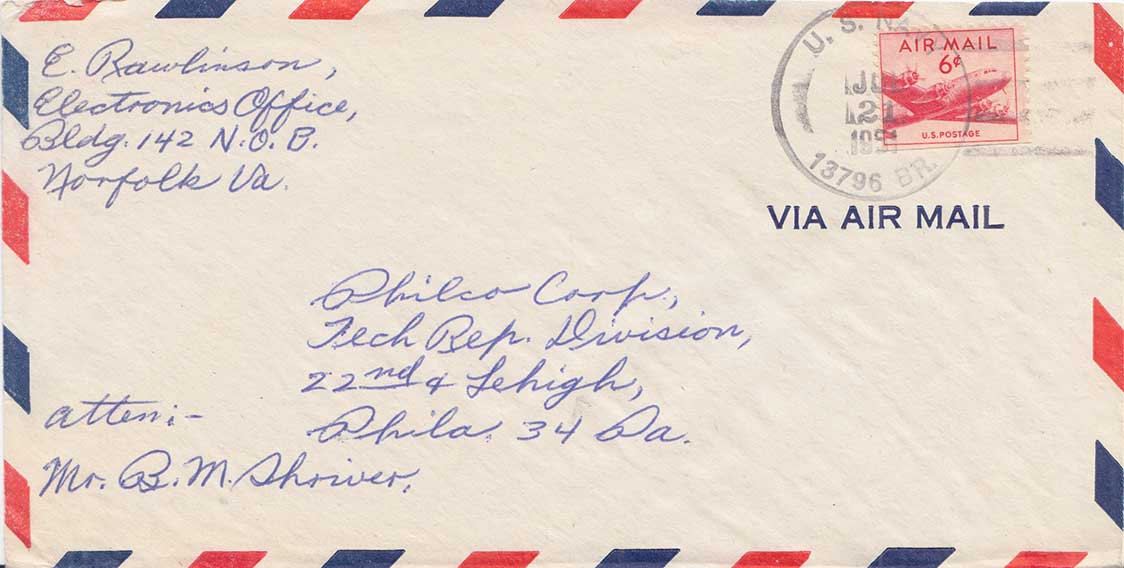 E. Rawlinson,
Electronics Office,
Bldg. 142 N.O.B.
Norfolk Va.
U. S. NAVY
JUL
21
1951
13796 BR.
AIR MAIL
6¢
U.S. POSTAGE
VIA AIR MAIL
Philco Corp.,
Tech Rep. Division,
22nd & Lehigh,
Phila. 34 Pa.
atten:-
Mr. B. M. Shriver.